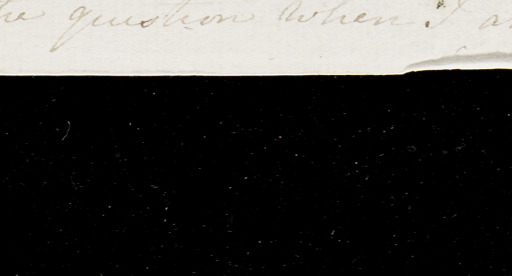 the question when I a